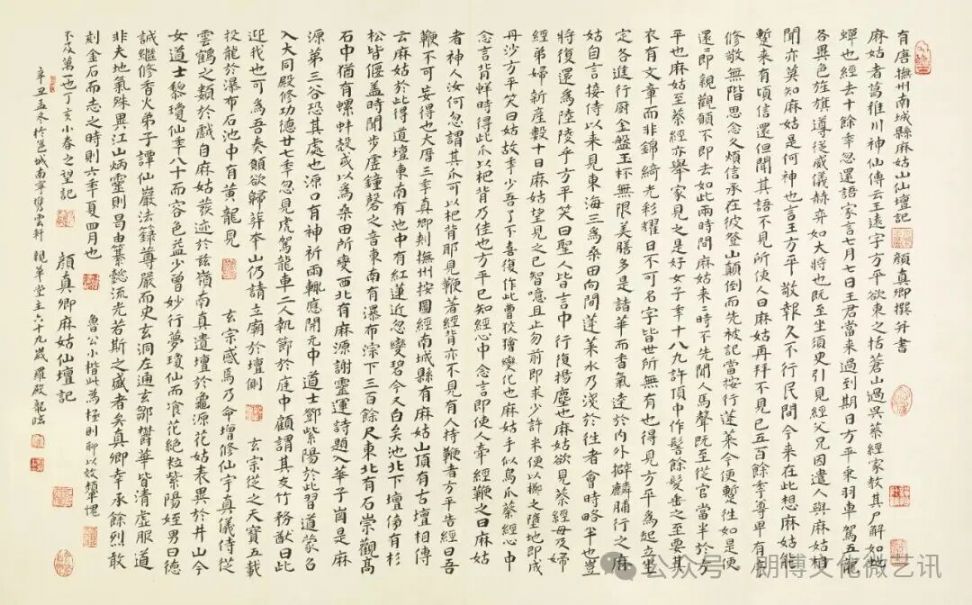 有唐撫州南城縣麻姑山仙壇記 顏真卿撰并書
麻姑者葛稚川神仙傳云王遠字方平欲東之括蒼山過吳蔡經家教其尸解如蛇
蟬也經去十餘季忽還語家言七月七日王君當来過到期日方平乘羽車駕五龍
各異色旌旗導從威儀赫奕如大將也既至坐須臾引見經父兄因遣人與麻姑相
聞亦莫知麻姑是何神也言王方平敬報久不行民間今来在此想麻姑能
暫来有頃信還但聞其語不見所使人曰麻姑再拜不見已五百餘季尊卑有序
修敬無階思念久煩信承在彼登山顛倒而先被記當按行蓬莱今便暫往如是便
還=即親觀願不即去如此兩時間麻姑来=時不先聞人馬聲既至從官當半於方
平也麻姑至蔡經亦舉家見之是好女子季十八九許頂中作髻餘髮垂之至要其
衣有文章而非錦綺光彩耀日不可名字皆世所無有也得見方平=為起立坐
定各進行廚金盤玉杯無限美膳多是諸華而香氣達於內外擗麟脯行之麻
姑自言接侍以来見東海三為桑田向間蓬莱水乃淺於往者會時略半也豈
將復還為陸陵乎方平笑曰聖人皆言中行復揚塵也麻姑欲見蔡經母及婦
經弟婦新產數十日麻姑望見之已智噫且止勿前即求少許米便以擲之墮地即成
丹沙方平笑曰姑故季少吾了不喜復作此曹狡獪變化也麻姑手似鳥爪蔡經心中
念言背蛘時得此爪以杷背乃佳也方平已知經心中念言即使人牽經鞭之曰麻姑
者神人汝何忽謂其爪可以杷背耶見鞭著經背亦不見有人持鞭者方平告經曰吾
鞭不可妄得也大曆三季真卿刺撫州按圖經南城縣有麻姑山頂有古壇相傳
云麻姑於此得道壇東南有池中有紅蓮近忽變碧今又白矣池北下壇傍有杉
松皆偃蓋時聞步虛鐘磬之音東南有瀑布淙下三百餘尺東北有石崇觀高
石中猶有螺蚌殼或以為桑田所變西北有麻源謝靈運詩題入華子崗是麻
源第三谷恐其處也源口有神祈雨輒應開元中道士鄧紫陽於此習道蒙召
入大同殿修功德廿七季忽見虎駕龍車二人執節於庭中顧謂其友竹務猷曰此
迎我也可為吾奏願欲歸葬本山仍請立廟於壇側 玄宗從之天寶五載
投龍於瀑布石池中有黃龍見 玄宗感焉乃命增修仙宇真儀侍從
雲鶴之類於戲自麻姑發迹於茲嶺南真遺壇於龜源花姑表異於井山今
女道士黎瓊仙季八十而容色益少曾妙行夢瓊仙而食花絕粒紫陽姪男曰德
誠繼修香火弟子譚仙巖法籙尊嚴而史玄洞左通玄鄒鬱華皆清虛服道
非夫地氣殊異江山炳靈則曷由纂懿流光若斯之盛者矣真卿幸承餘烈敢
刻金石而志之時則六季夏四月也 魯公小楷此為極則聊以效顰愧
不及萬一也丁亥小春之望記 顏真卿麻姑仙壇記
辛丑孟冬於邕城南寧雲軒 硯華堂主六十九歲羅殿龍臨
公众号 朗博文化微艺讯